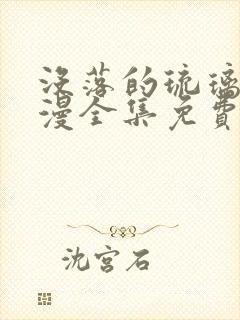 没落的琉璃
漫全集免费
沈宫石